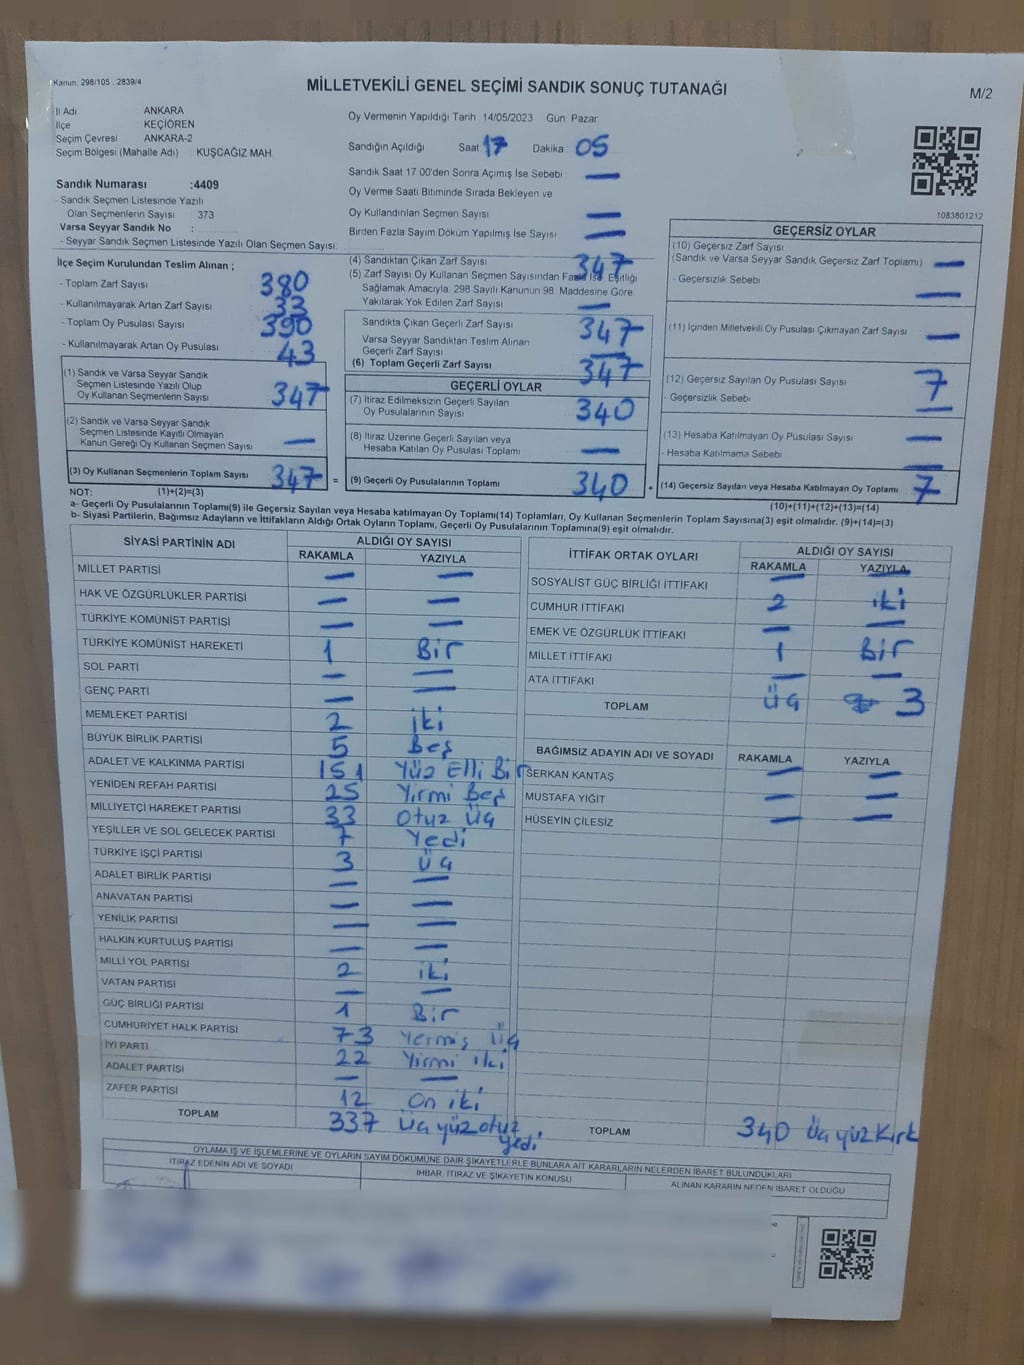 Kanun: 298/105 , 2839/4
MİLLETVEKİLİ GENEL SEÇİMİ SANDIK SONUÇ TUTANAĞI
M/2
İl Adı ANKARA
İlçe KEÇİÖREN
Seçim Çevresi ANKARA-2
Seçim Bölgesi (Mahalle Adı) KUŞCAĞIZ MAH.
Oy Vermenin Yapıldığı Tarih 14/05/2023 Gün: Pazar
Sandığın Açıldığı Saat 17 Dakika 05
Sandık Saat 17 00'den Sonra Açımış İse Sebebi : —
Oy Verme Saati Bitiminde Sırada Bekleyen ve
Oy Kullandırılan Seçmen Sayısı : —
Birden Fazla Sayım Döküm Yapılmış İse Sayısı : —
Sandık Numarası :4409
- Sandık Seçmen Listesinde Yazılı
Olan Seçmenlerin Sayısı 373
Varsa Seyyar Sandık No :
- Seyyar Sandık Seçmen Listesinde Yazılı Olan Seçmen Sayısı:
1083801212
İlçe Seçim Kurulundan Teslim Alınan ;
- Toplam Zarf Sayısı 380
- Kullanılmayarak Artan Zarf Sayısı 33
- Toplam Oy Pusulası Sayısı 390
- Kullanılmayarak Artan Oy Pusulası 43
(1) Sandık ve Varsa Seyyar Sandık
Seçmen Listesinde Yazılı Olup
Oy Kullanan Seçmenlerin Sayısı 347
(2) Sandık ve Varsa Seyyar Sandık
Seçmen Listesinde Kayıtlı Olmayan
Kanun Gereği Oy Kullanan Seçmen Sayısı —
(3) Oy Kullanan Seçmenlerin Toplam Sayısı 347 =
(1)+(2)=(3)
(4) Sandıktan Çıkan Zarf Sayısı 347
(5) Zarf Sayısı Oy Kullanan Seçmen Sayısından Fazla İse, Eşitliği
Sağlamak Amacıyla; 298 Sayılı Kanunun 98. Maddesine Göre
Yakılarak Yok Edilen Zarf Sayısı —
Sandıkta Çıkan Geçerli Zarf Sayısı 347
Varsa Seyyar Sandıktan Teslim Alınan
Geçerli Zarf Sayısı —
(6) Toplam Geçerli Zarf Sayısı 347
GEÇERLİ OYLAR
(7) İtiraz Edilmeksizin Geçerli Sayılan
Oy Pusulalarının Sayısı 340
(8) İtiraz Üzerine Geçerli Sayılan veya
Hesaba Katılan Oy Pusulası Toplamı —
(9) Geçerli Oy Pusulalarının Toplamı 340 +
GEÇERSİZ OYLAR
(10) Geçersiz Zarf Sayısı
(Sandık ve Varsa Seyyar Sandık Geçersiz Zarf Toplamı) —
- Geçersizlik Sebebi : —
(11) İçinden Milletvekili Oy Pusulası Çıkmayan Zarf Sayısı : —
(12) Geçersiz Sayılan Oy Pusulası Sayısı : 7
- Geçersizlik Sebebi : —
(13) Hesaba Katılmayan Oy Pusulası Sayısı : —
- Hesaba Katılmama Sebebi : —
(14) Geçersiz Sayılan veya Hesaba Katılmayan Oy Toplamı : 7
(10)+(11)+(12)+(13)=(14)
NOT:
a- Geçerli Oy Pusulalarının Toplamı(9) ile Geçersiz Sayılan veya Hesaba katılmayan Oy Toplamı(14) Toplamları, Oy Kullanan Seçmenlerin Toplam Sayısına(3) eşit olmalıdır. (9)+(14)=(3)
b- Siyasi Partilerin, Bağımsız Adayların ve İttifakların Aldığı Ortak Oyların Toplamı, Geçerli Oy Pusulalarının Toplamına(9) eşit olmalıdır.
SİYASİ PARTİNİN ADI ALDIĞI OY SAYISI
RAKAMLA YAZIYLA
MİLLET PARTİSİ — —
HAK VE ÖZGÜRLÜKLER PARTİSİ — —
TÜRKİYE KOMÜNİST PARTİSİ — —
TÜRKİYE KOMÜNİST HAREKETİ 1 Bir
SOL PARTİ — —
GENÇ PARTİ — —
MEMLEKET PARTİSİ 2 iki
BÜYÜK BİRLİK PARTİSİ 5 Beş
ADALET VE KALKINMA PARTİSİ 151 Yüz Elli Bir
YENİDEN REFAH PARTİSİ 25 Yirmi Beş
MİLLİYETÇİ HAREKET PARTİSİ 33 Otuz Üç
YEŞİLLER VE SOL GELECEK PARTİSİ 7 Yedi
TÜRKİYE İŞÇİ PARTİSİ 3 Üç
ADALET BİRLİK PARTİSİ — —
ANAVATAN PARTİSİ — —
YENİLİK PARTİSİ — —
HALKIN KURTULUŞ PARTİSİ — —
MİLLİ YOL PARTİSİ 2 iki
VATAN PARTİSİ — —
GÜÇ BİRLİĞİ PARTİSİ 1 Bir
CUMHURİYET HALK PARTİSİ 73 Yermiş Üç
İYİ PARTİ 22 Yirmi iki
ADALET PARTİSİ — —
ZAFER PARTİSİ 12 On iki
TOPLAM 337 Üç yüz otuz yedi.
İTTİFAK ORTAK OYLARI ALDIĞI OY SAYISI
RAKAMLA YAZIYLA
SOSYALIST GÜÇ BİRLİĞİ İTTİFAKI — —
CUMHUR İTTİFAKI 2 iki
EMEK VE ÖZGÜRLÜK İTTİFAKI — —
MİLLET İTTİFAKI 1 Bir
ATA İTTİFAKI — —
TOPLAM Üç 3
BAĞIMSIZ ADAYIN ADI VE SOYADI RAKAMLA YAZIYLA
SERKAN KANTAŞ — —
MUSTAFA YİĞİT — —
HÜSEYİN ÇİLESİZ — —
TOPLAM 340 Üç yüz Kırk
OYLAMA İŞ VE İŞLEMLERİNE VE OYLARIN SAYIM DÖKÜMÜNE DAİR ŞİKAYETLERLE BUNLARA AİT KARARLARIN NELERDEN İBARET BULUNDUKLARI
İTİRAZ EDENİN ADI VE SOYADI İHBAR, İTİRAZ VE ŞİKAYETİN KONUSU ALINAN KARARIN NEDEN İBARET OLDUĞU